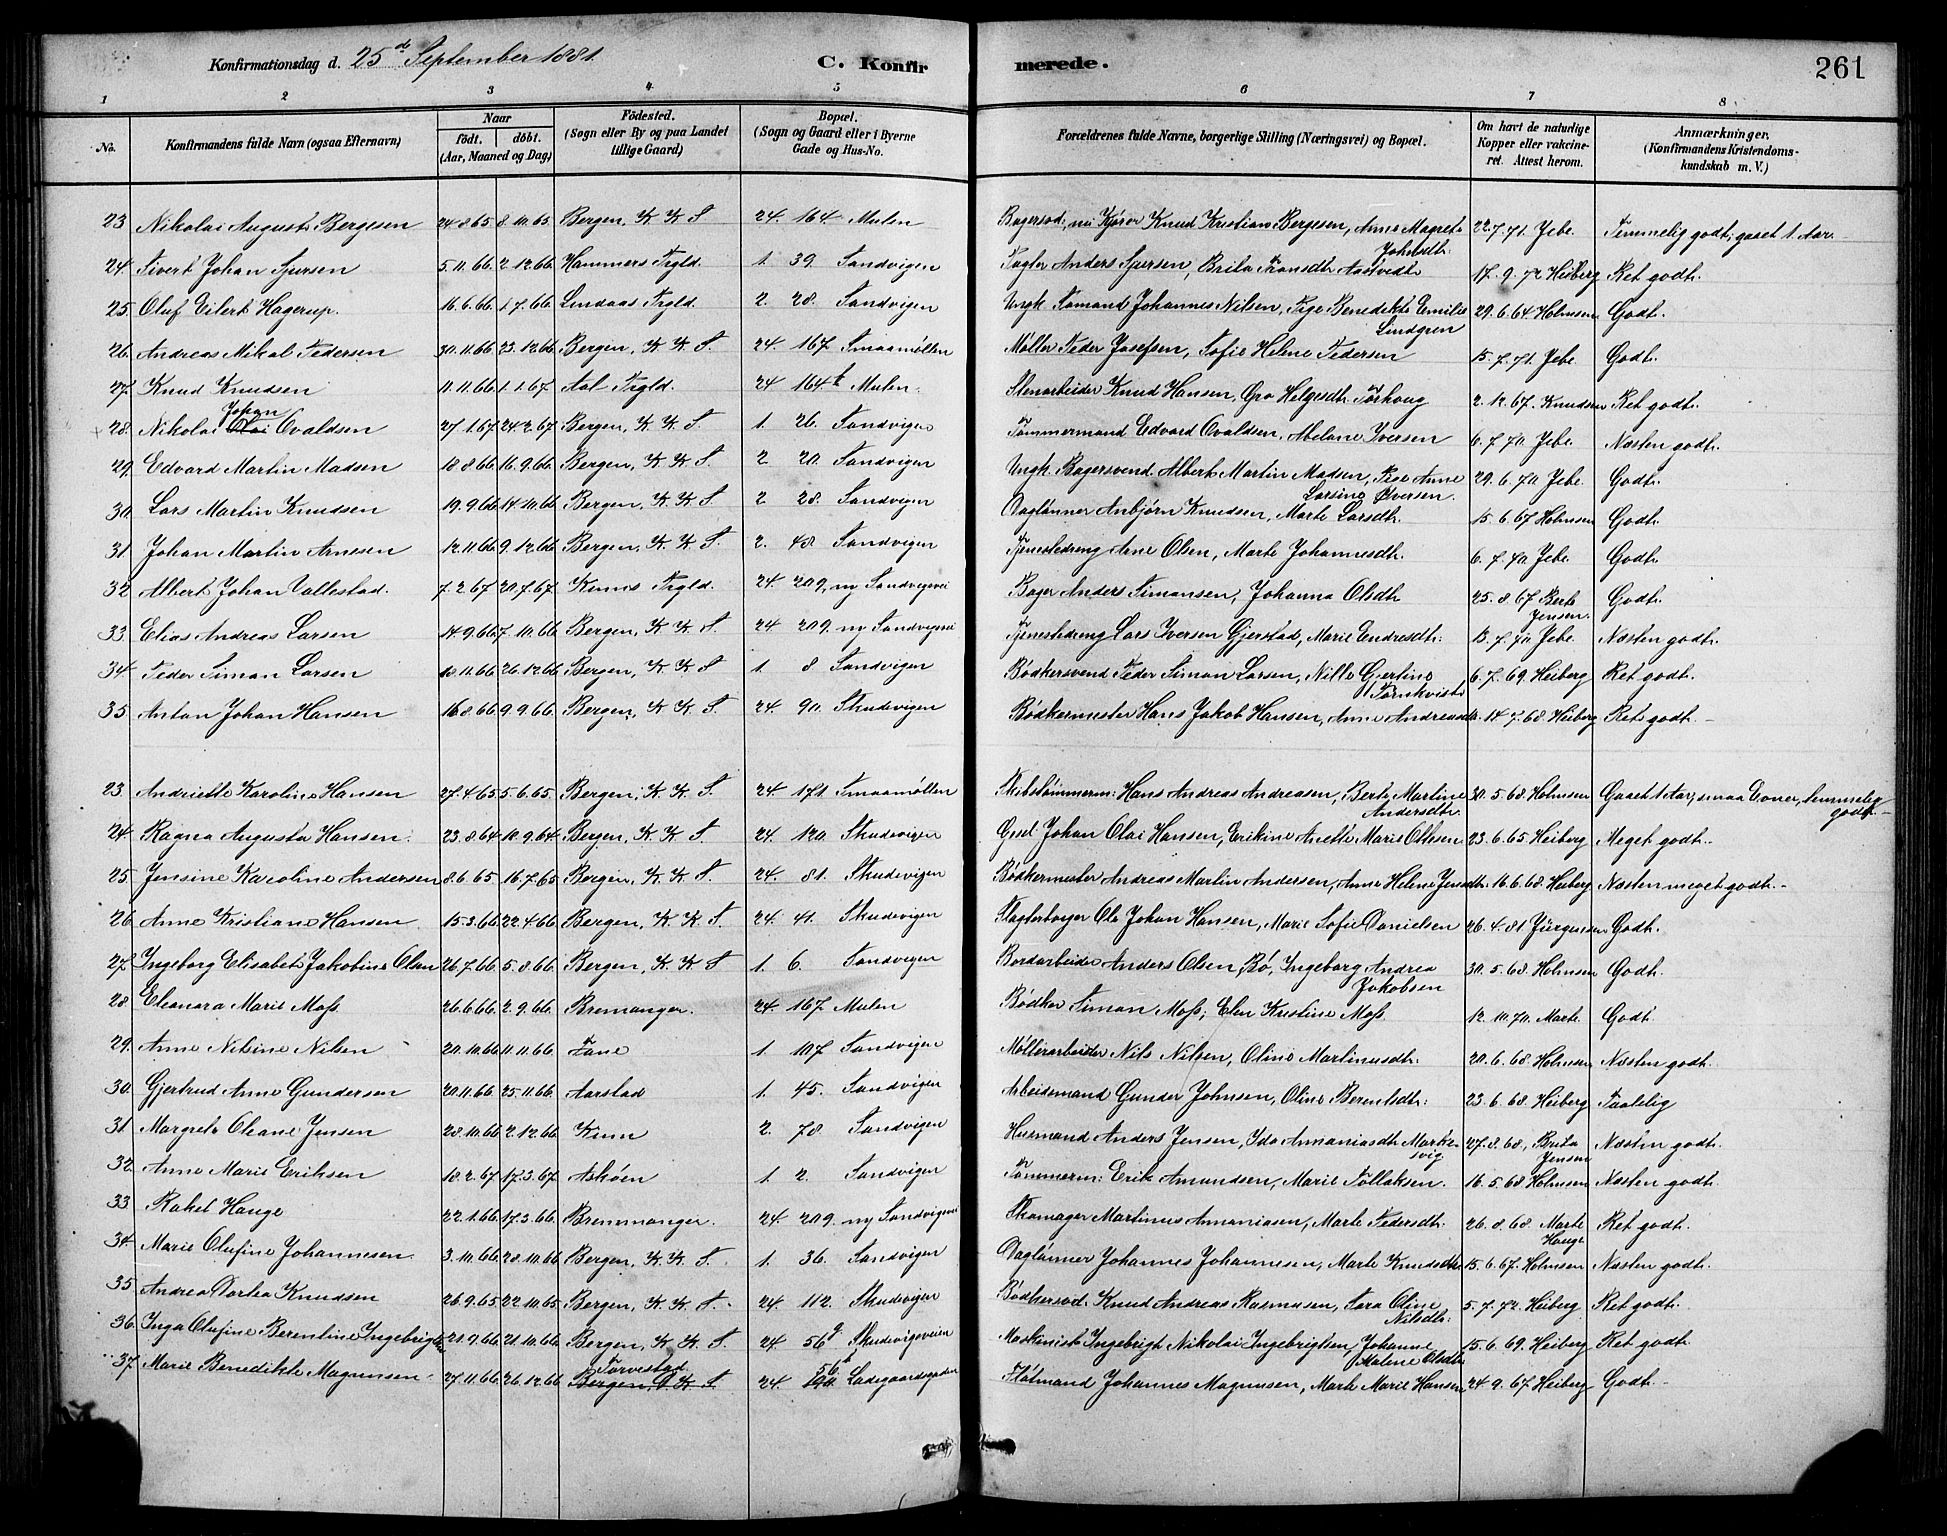 Konfirmationsdag d. 25de September 1881. C. Konfirmerede. 261
1 2 3 4 5 6 7 8
No. Konfirmandens fulde Navn (ogsaa Efternavn) Naar født. døbt. (Aar, Maaned og Dag) Fødested. (Sogn eller By og paa Landet tillige Gaard) Bopæl. (Sogn og Gaard eller i Byerne Gade og Hus-No. Forældrenes fulde Navne, borgerlige Stilling (Næringsvei) og Bopæl. Om havt de naturlige Kopper eller vakcineret. Attest herom. Anmærkninger, (Konfirmandens Kristendomskundskab m. V.)
23 Nikolai August Bergesen 24.8.65 8.10.65 Bergen, K. K. S. 24. 164 Mulen Bagersvd., nu Kjører Knud Kristian Bergesen, Anne Magrete Jakobsdtr. 22.7.71. Jebe. Temmelig godt, gaaet 1 Aar.
24. Sivert Johan Sjursen 5.11.66. 2.12.66. Hammers Prgld. 1. 39. Sandvigen Fagler Anders Sjursen, Brita Fransdtr. Aastvedt 17.9.72 Heiberg Ret godt.
25. Oluf Eilert Hagerup. 16.6.66. 1.7.66. Lindaas Prgld. 2. 28. Sandvigen Ungk. Sømand Johannes Nilsen, Pige Benedikte Emilie Lindgren 29.6.64 Holmsen Godt.
26. Andreas Mikal Pedersen 30.11.66 23.12.66 Bergen, K. K. S. 24. 167 Smaamøllen Møller Peder Josefsen, Sofie Helene Pedersen 15.7.71. Jebe. Godt.
27. Knud Knudsen 11.11.66 1.1.67. Aal Prgld. 24 164b Mulen. Stenarbeider Knud Hansen, Gro Helgesdtr. 2.12.67. Knudsen Ret godt.
28. Nikolai Johan Ovaldsen 27.1.67 24.2.67 Bergen, K. K. S. 1. 26. Sandvigen Tømmermand Edvard Ovaldsen, Abelone Iversen 6.7.70. Jebe. Næsten godt.
29. Edvard Martin Madsen 18.8.66 16.9.66. Bergen, K. K. S. 2 20. Sandvigen Ungk. Bagersvend Albert Martin Madsen, Pige Anne Larsine Iversen. 29.6.70 Jebe. Godt.
30. Lars Martin Knudsen 19.9.66 14.10.66 Bergen, K. K. S 2 28. Sandvigen Daglønner Anbjørn Knudsen, Marte Larsdtr. 15.6.67 Holmsen Godt.
31. Johan Martin Arnesen 12.11.66 9.12.66 Bergen, K. K. S. 2. 48. Sandvigen Tjenestedreng Arne Olsen, Marte Johannesdtr. 6.7.70. Jebe. Godt.
32. Albert Johan Vallestad. 7.2.67 20.7.67. Kinns Prgld. 24 209, ny Sandvigsvei Bager Anders Simonsen, Johanna Olsdtr 25.8.67 Berte Jensen. Godt.
33. Elias Andreas Larsen 14.9.66 7.10.66 Bergen, K. K. S. 24 209. ny Sandvigsvei Tjenestedreng Lars Iversen Gjerstad, Marie Endresdtr. 15.7.70. Jebe. Næsten godt.
34. Peder Simon Larsen 18.11.66 26.12.66 Bergen, K. K S 1. 8 Sandvigen Bødkersvend Peder Simon Larsen, Nille Gjertine Tørnkvist 6.7.69. Heiberg Ret godt.
35. Anton Johan Hansen 16.8.66 9.9.66. Bergen, K. K. S. 24. 90. Skudevigen Bødkermester Hans Jakob Hansen, Anne Andreasdtr. 14.7.68. Heiberg Ret godt.
23. Andriette Karoline Hansen 27.4.65 5.6.65. Bergen, K. K. S. 24. 171. Smaamøllen Skibstømmerm: Hans Andreas Andreasen, Berte Martine Andersdtr. 30.5.68 Holmsen Gaaet 1 Aar, smaa Evner, temmelig godt.
24. Ragna Augusta Hansen. 23.8.64 10.9.64. Bergen, K. K. S. 24. 120. Skudevigen Gsel. Johan Olai Hansen, Erikine Anette Marie Olsen 23.6.65 Heiberg Meget godt.
25. Jensine Karoline Andersen 8.6.65. 16.7.65 Bergen, K. K. S. 24. 81. Skudevigen Bødkermester Andreas Martin Andersen, Anne Helene Jensdtr. 16.6.68 Heiberg Næsten meget godt.
26. Anne Kristiane Hansen 15.3.66 22.4.66 Bergen, K. K. S 24. 41. Skudevigen Slagterborger Ole Johan Hansen, Marie Sofie Danielsen 26.4.81 Jürgensen Godt.
27. Ingeborg Elisabet Jakobine Olsen 26.7.66 5.8.66 Bergen, K. K. S 1. 6. Sandvigen Bordarbeider Anders Olsen Bø, Ingeborg Andrea Jakobsen 30.5.68. Holmsen Godt.
28 Eleonora Marie Moss 26.6.66 2.9.66. Bremanger. 24. 167 Mulen Bødker Simon Moss, Elen Kristine Moss 12.10.70. Marte. Godt.
29. Anne Nilsine Nilsen 20.10.66 11.11.66. Fane 1. 107 Sandvigen Møllerarbeider Nils Nilsen, Oline Martinusdtr. 20.6.68 Holmsen Næsten godt.
30. Gjertrud Anne Gundersen 20.11.66 25.11.66. Aarstad 1. 45. Sandvigen Arbeidsmand Gunder Johnsen, Oline Berentsdtr. 23.6.68. Heiberg Taalelig
31. Margrete Oleane Jensen 28.10.66 2.12.66 Kinn 2. 78. Sandvigen Husmand Anders Jensen, Ida Ananiasdtr. 27.8.68, Brita Jensen Næsten godt.
32. Anne Marie Eriksen 18.2.67 17.3.67. Askøen 1. 2. Sandvigen Tømmerm: Erik Amundsen, Marie Tollaksen. 16.5.68 Holmsen Næsten godt.
33. Rakel Hauge 22.1.66 17.3.66. Bremmanger. 24 209. ny Sandvigsvei Skomager Martinus Ananiasen, Marte Pedersdtr. 26.8.68. Marte Hauge Ret godt.
34. Marie Olufine Johannesen 3.10.66 28.10.66 Bergen, K. K. S. 1. 36. Sandvigen Daglønner Johannes Johannesen, Marte Knudsdtr. 15.6.67. Holmsen Næsten godt.
35. Andrea Dortea Knudsen 26.9.65 22.10.65 Bergen, K. K. S. 24 112. Skudevigen Bødkersvd. Knud Andreas Rasmusen, Sara Oline Nilsdtr. 5.7.72. Heiberg Ret godt.
36. Inga Olufine Berentine Ingebrigtsen 21.9.66 21.10.66. Bergen, K. K. S 24 56g Skudevigsveien Maskinist Ingebrigt Nikolai Ingebrigtsen, Johanne Malene Olsdtr. 15.6.69. Heiberg Ret godt.
37. Marie Benedikte Magnusen 27.11.66 26.12.66 Torvestad Bergen, K. K S 24 56 Ladegaardsgaden Flotmand Johannes Magnusen, Marte Marie Hansen 24.9.67 Heiberg Godt.